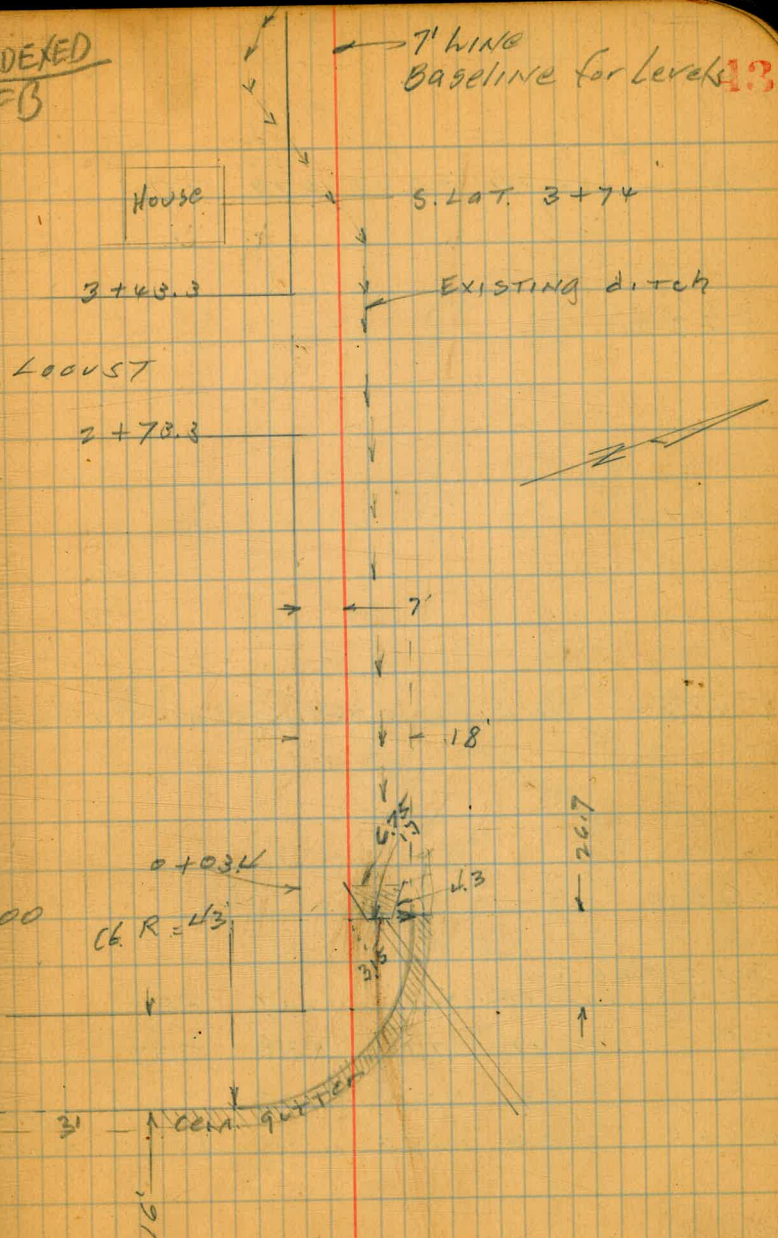 DEXED
EB
7' LINE
Baseline for Levels
13
House
S. LAT. 3+74
3+43.3
EXISTING ditch
LOCUST
2+73.3
7'
18'
6.75
26.7
0+03.4
4.3
00
R = 43'
3.5
3'
cem. gutter
16'